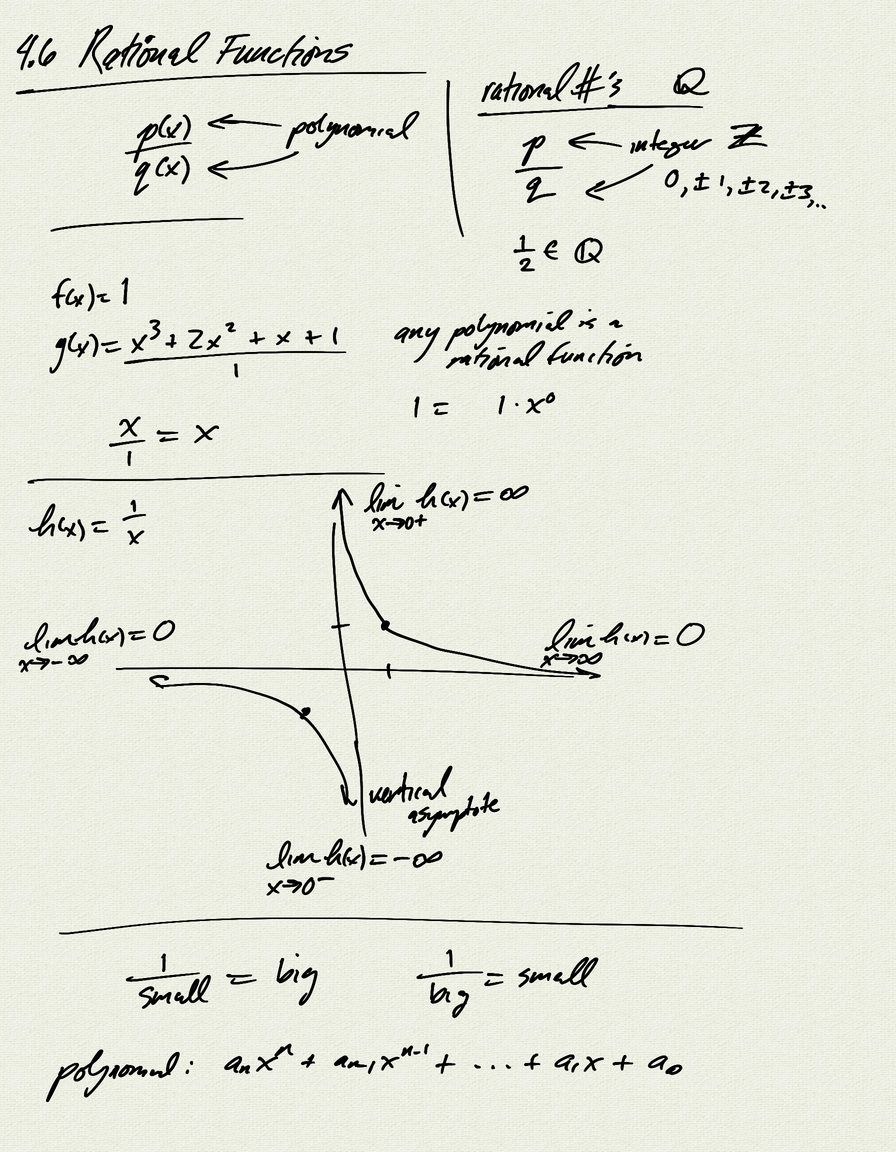 4.6 Rational Functions
p(x)/q(x) ← polynomial
rational #'s ℚ
p/q ← integer ℤ
0, ±1, ±2, ±3,..
1/2 ∈ ℚ
f(x) = 1
g(x) = (x³ + 2x² + x + 1)/1
any polynomial is a
rational function
1 = 1 · x⁰
x/1 = x
h(x) = 1/x
lim h(x) = ∞
x→0+
lim h(x) = 0
x→-∞
lim h(x) = 0
x→∞
vertical
asymptote
lim h(x) = -∞
x→0⁻
1/small = big
1/big = small
polynomial: aₙxⁿ + aₙ₋₁xⁿ⁻¹ + ... + a₁x + a₀